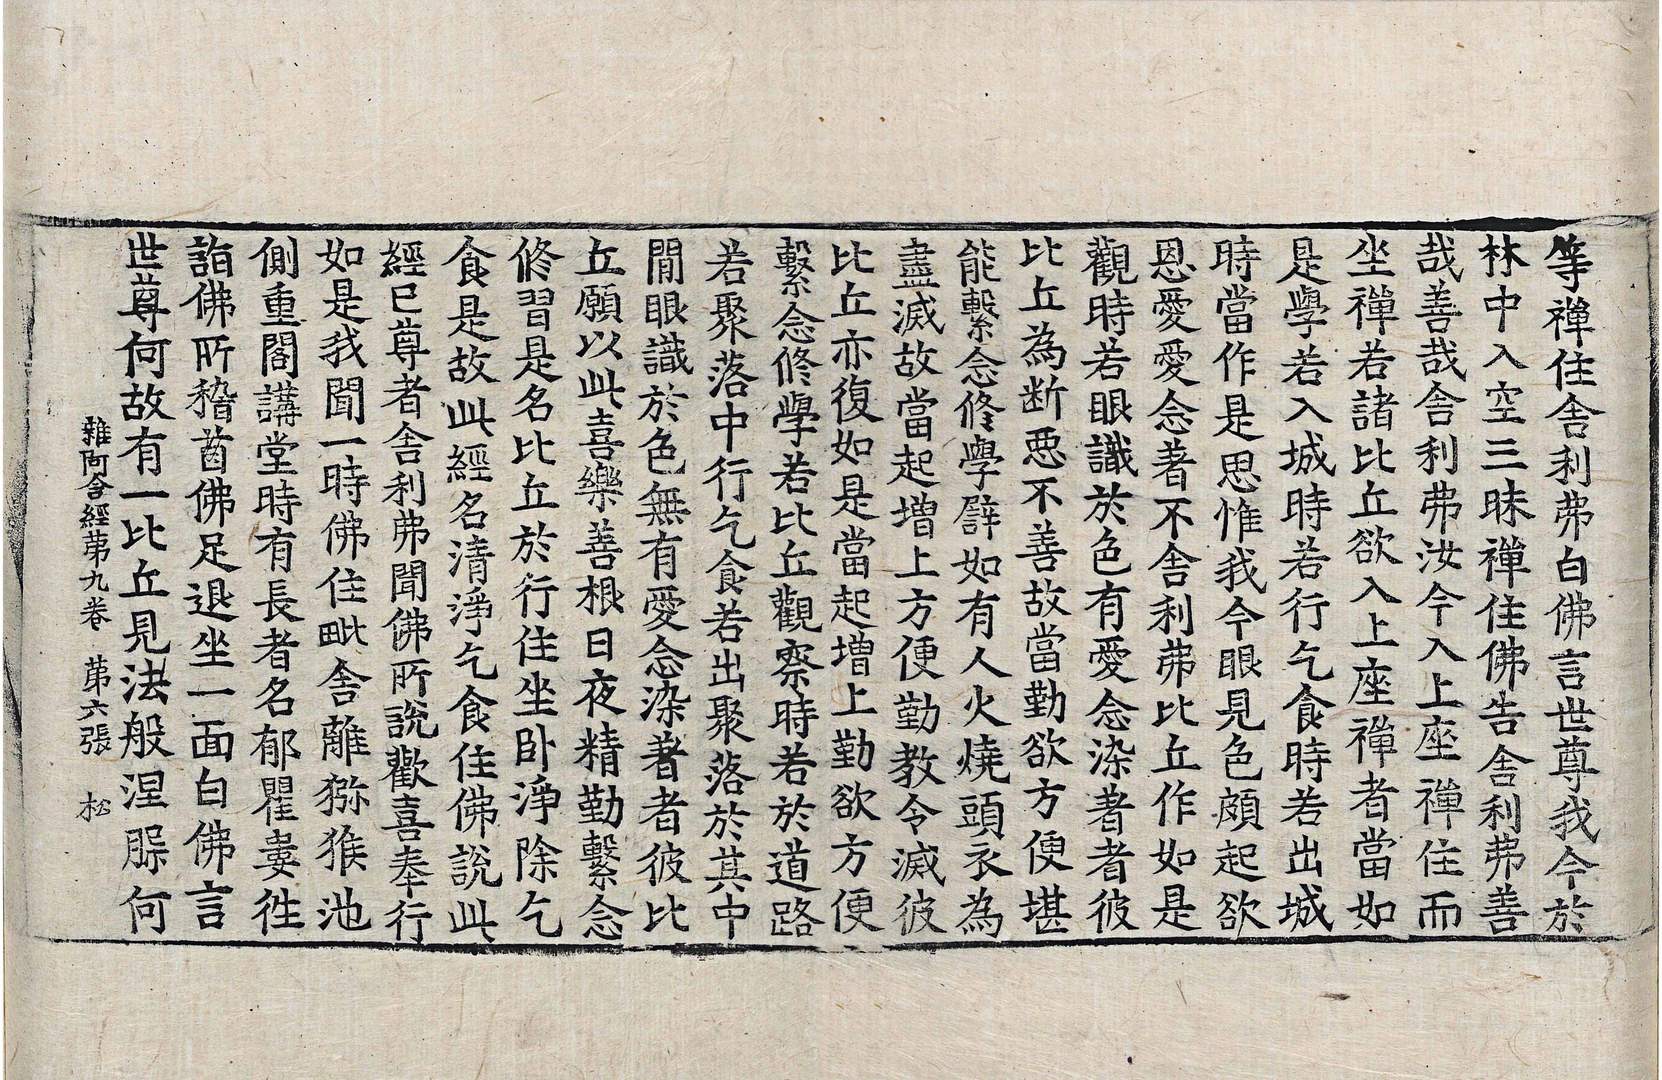 等禪住舍利弗白佛言世尊我今於
林中入空三昧禪住佛告舍利弗善
哉善哉舍利弗汝今入上座禪住而
坐禪若諸比丘欲入上座禪者當如
是學若入城時若行乞食時若出城
時當作是思惟我今眼見色頗起欲
恩愛愛念著不舍利弗比丘作如是
觀時若眼識於色有愛念染著者彼
比丘為断惡不善故當勤欲方便堪
能繫念修學譬如有人火燒頭衣為
盡滅故當起增上方便勤教令滅彼
比丘亦復如是當起增上勤欲方便
繫念修學若比丘觀察時若於道路
若聚落中行乞食若出聚落於其中
閒眼識於色無有愛念染著者彼比
丘願以此喜樂善根日夜精勤繫念
修習是名比丘於行住坐卧淨除乞
食是故此經名清淨乞食住佛說此
經已尊者舍利弗聞佛所說歡喜奉行
如是我聞一時佛住毗舍離猕猴池
側重閣講堂時有長者名郁瞿婁往
詣佛所稽首佛足退坐一面白佛言
世尊何故有一比丘見法般涅腺何
雜阿含經第九卷 第六張 松